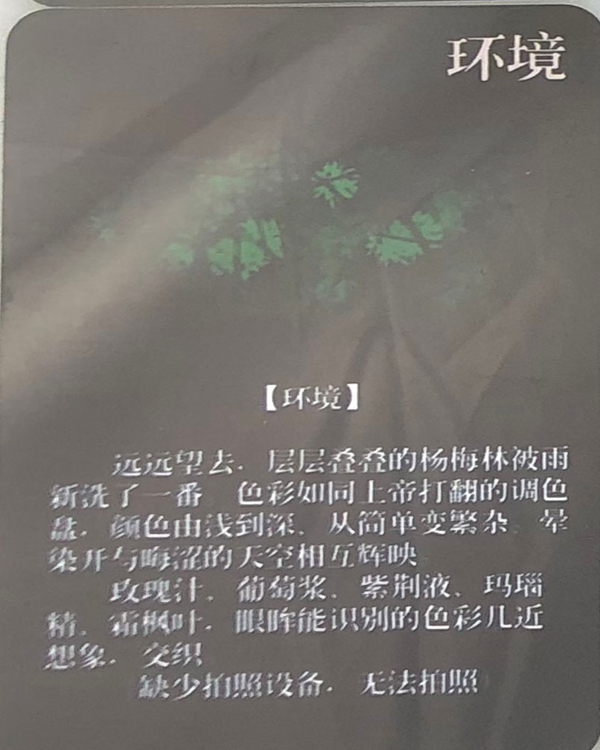 环境
【环境】
远远望去，层层叠叠的杨梅林被雨
新洗了一番，色彩如同上帝打翻的调色
盘，颜色由浅到深、从简单变繁杂，晕
染开与晦涩的天空相互辉映
玫瑰汁、葡萄浆、紫荆液、玛瑙
精、霜枫叶，眼眸能识别的色彩几近
想象，交织
缺少拍照设备，无法拍照